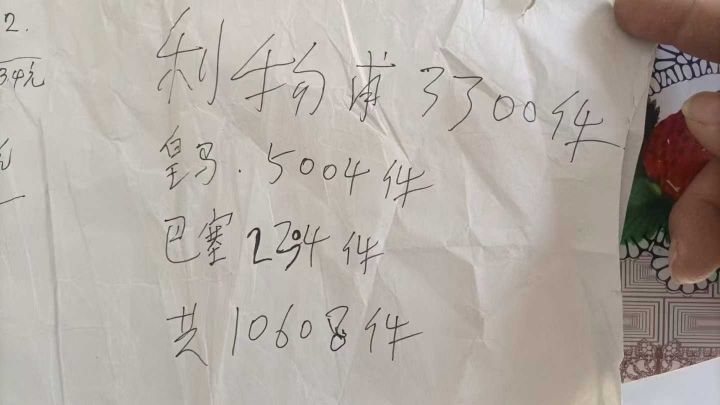 2.
34元
元
利物甫 3300件
皇马.5004件
巴塞 2304件
共10608件